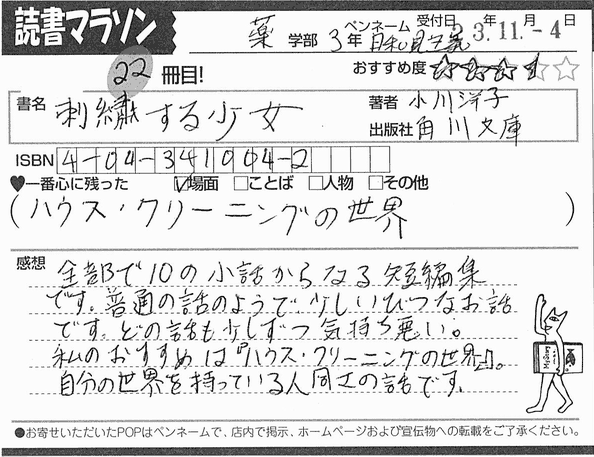 読書マラソン
薬 学部 3年 ペンネーム 受付日
3.年11.月-4日
22冊目!
おすすめ度 ☆☆☆☆☆
書名 刺繍する少女
著者 小川洋子
出版社 角川文庫
ISBN 4-04-341004-2
♥一番心に残った ☑場面 □ことば □人物 □その他
(ハウス・クリーニングの世界)
感想
全部で10の小話からなる短編集
です。普通の話のようで、少しいびつなお話
です。どの話も少しずつ気持ち悪い。
私のおすすめは『ハウス・クリーニングの世界』。
自分の世界を持っている人同士の話です。
●お寄せいただいたPOPはペンネームで、店内で掲示、ホームページおよび宣伝物への転載をご了承ください。